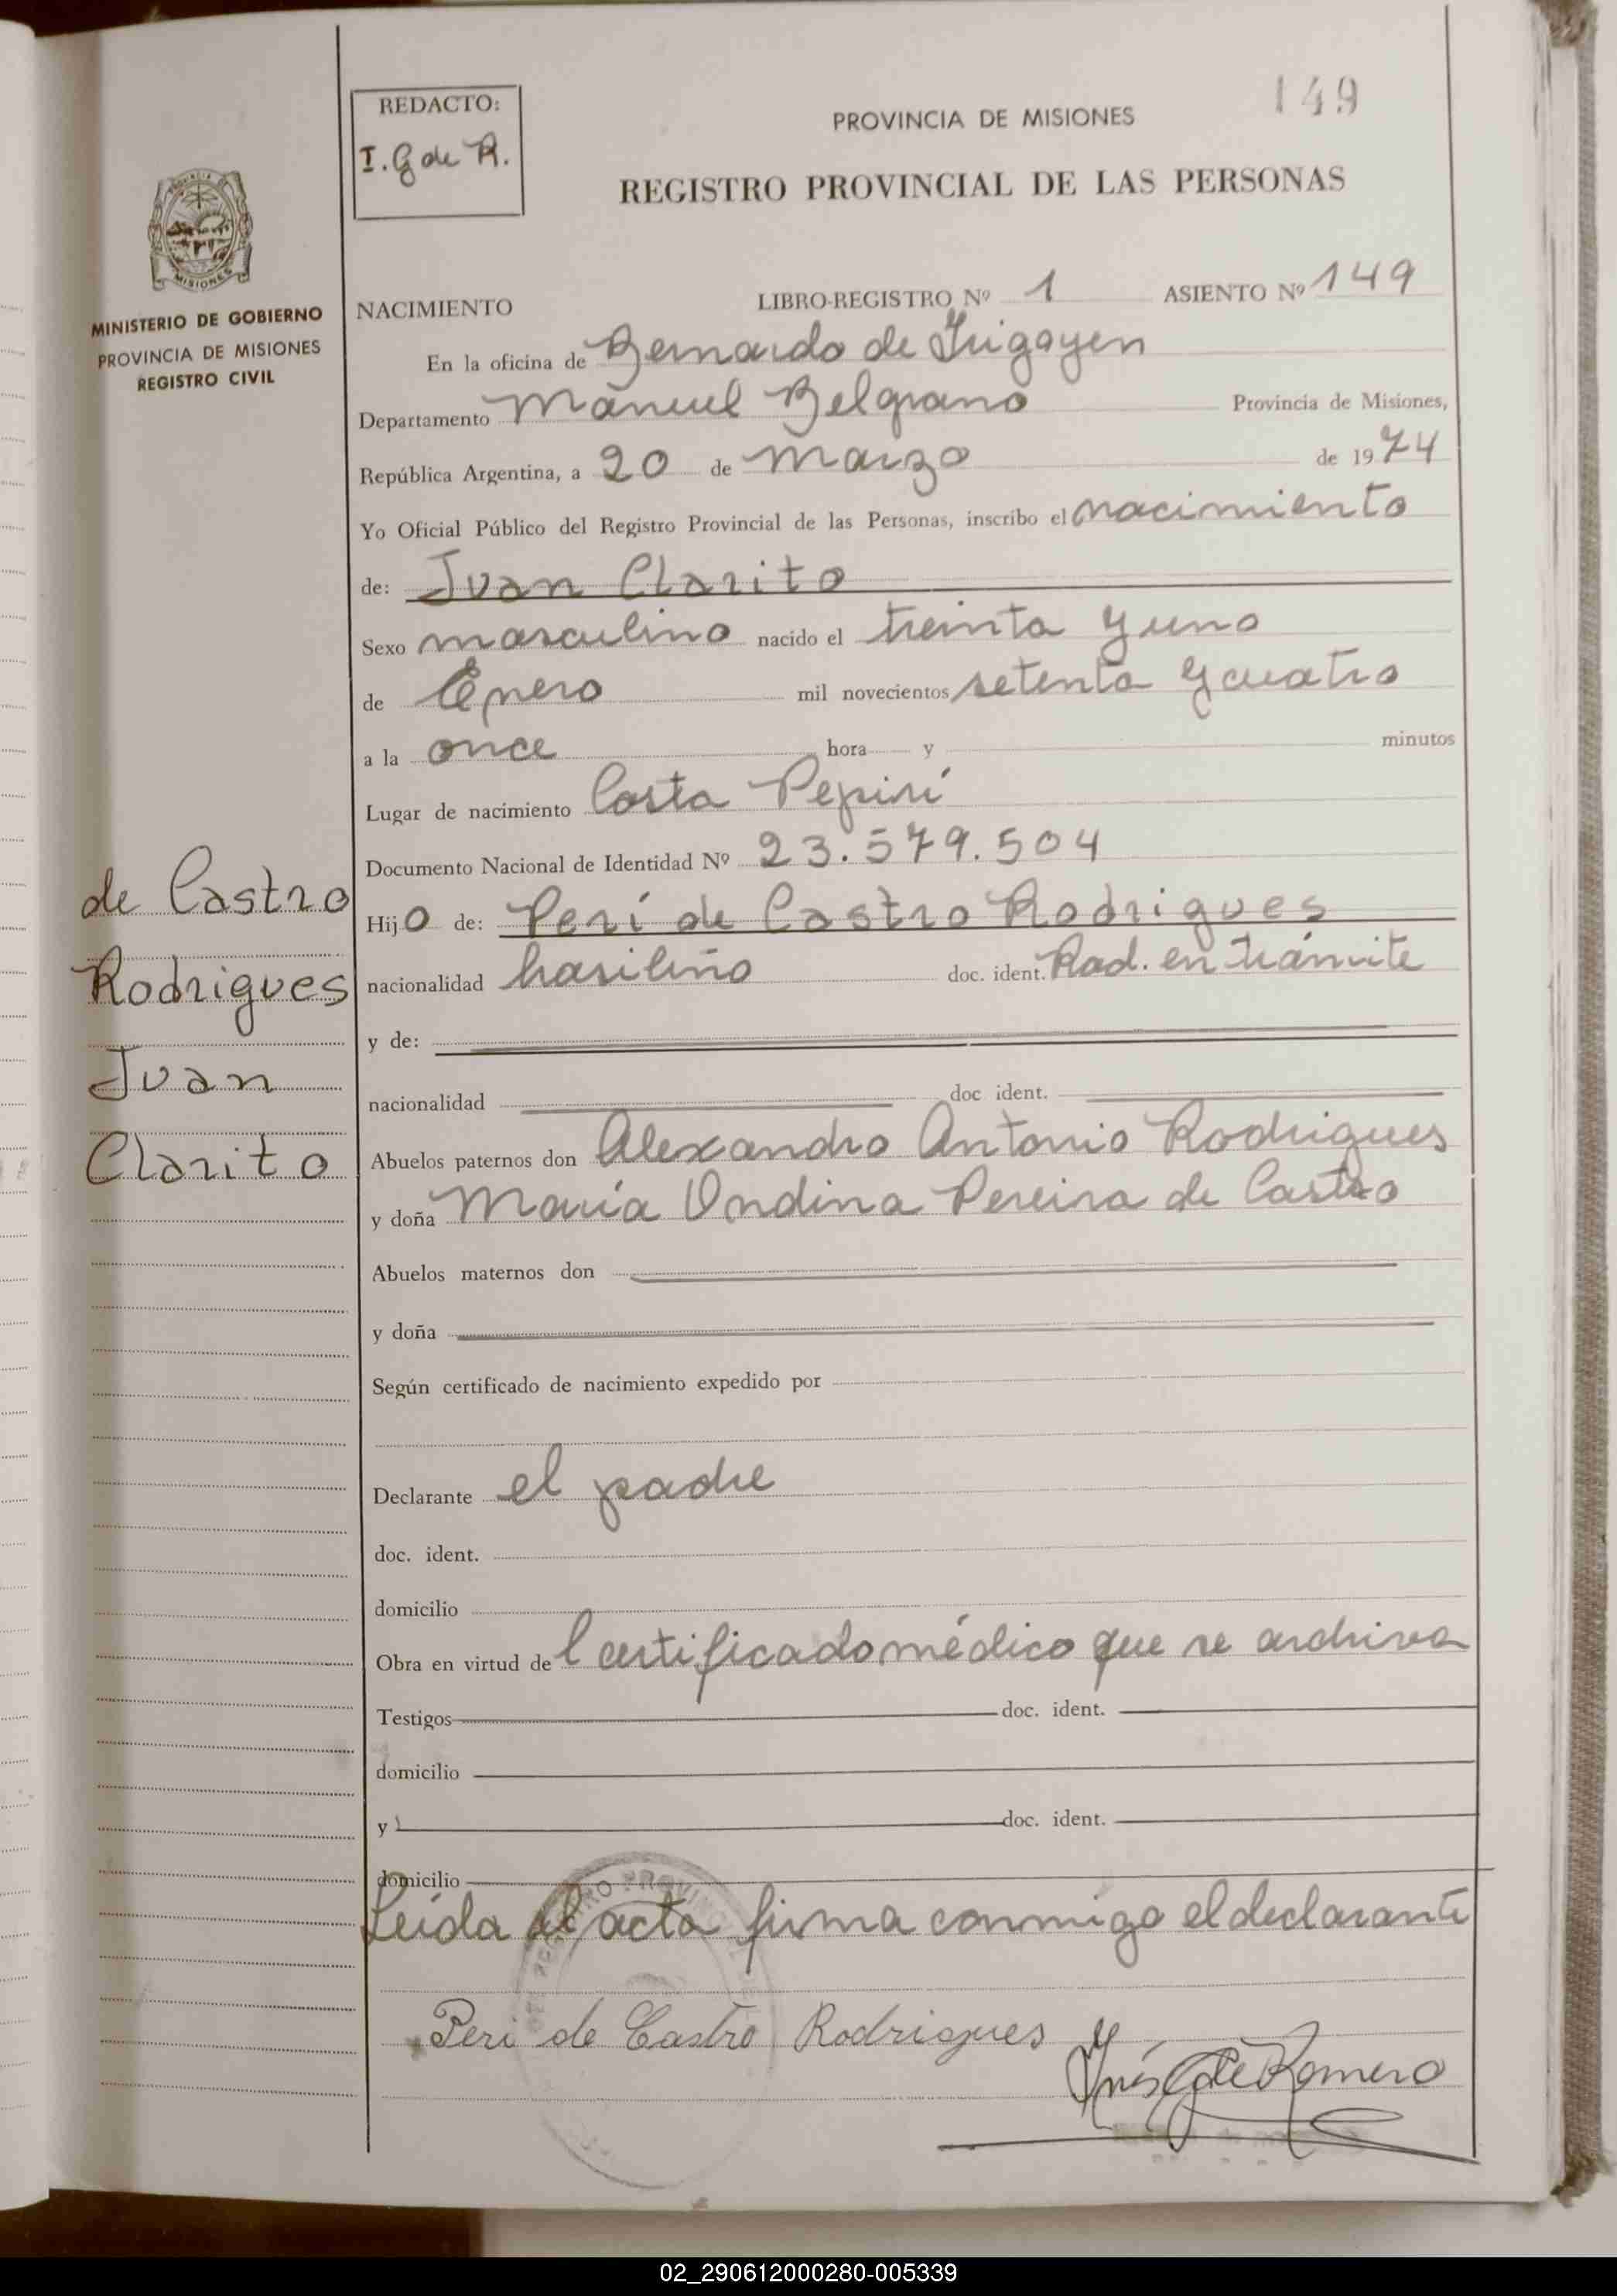 149
REDACTO:
I. G de R.
PROVINCIA DE MISIONES
REGISTRO PROVINCIAL DE LAS PERSONAS
MISIONES
MINISTERIO DE GOBIERNO
PROVINCIA DE MISIONES
REGISTRO CIVIL
NACIMIENTO LIBRO-REGISTRO Nº 1 ASIENTO Nº 149
En la oficina de Bernardo de Irigoyen
Departamento Manuel Belgrano Provincia de Misiones,
República Argentina, a 20 de Marzo de 1974
Yo Oficial Público del Registro Provincial de las Personas, inscribo el nacimiento
de: Juan Clarito
Sexo masculino nacido el treinta y uno
de Enero mil novecientos setenta y cuatro
a la once hora y minutos
Lugar de nacimiento Costa Pepirí
Documento Nacional de Identidad Nº 23.579.504
de Castro
Rodrigues
Juan
Clarito
Hijo de: Perí de Castro Rodrigues
nacionalidad brasileño doc. ident. Rad. en trámite
y de:
nacionalidad doc ident.
Abuelos paternos don Alexandro Antonio Rodrigues
y doña María Ondina Pereira de Castro
Abuelos maternos don
y doña
Según certificado de nacimiento expedido por
Declarante el padre
doc. ident.
domicilio
Obra en virtud del certificado médico que se archiva
Testigos doc. ident.
domicilio
y doc. ident.
domicilio
Leída el acta firma conmigo el declarante
Peri de Castro Rodrigues
Inés G de Romero
02_290612000280-005339